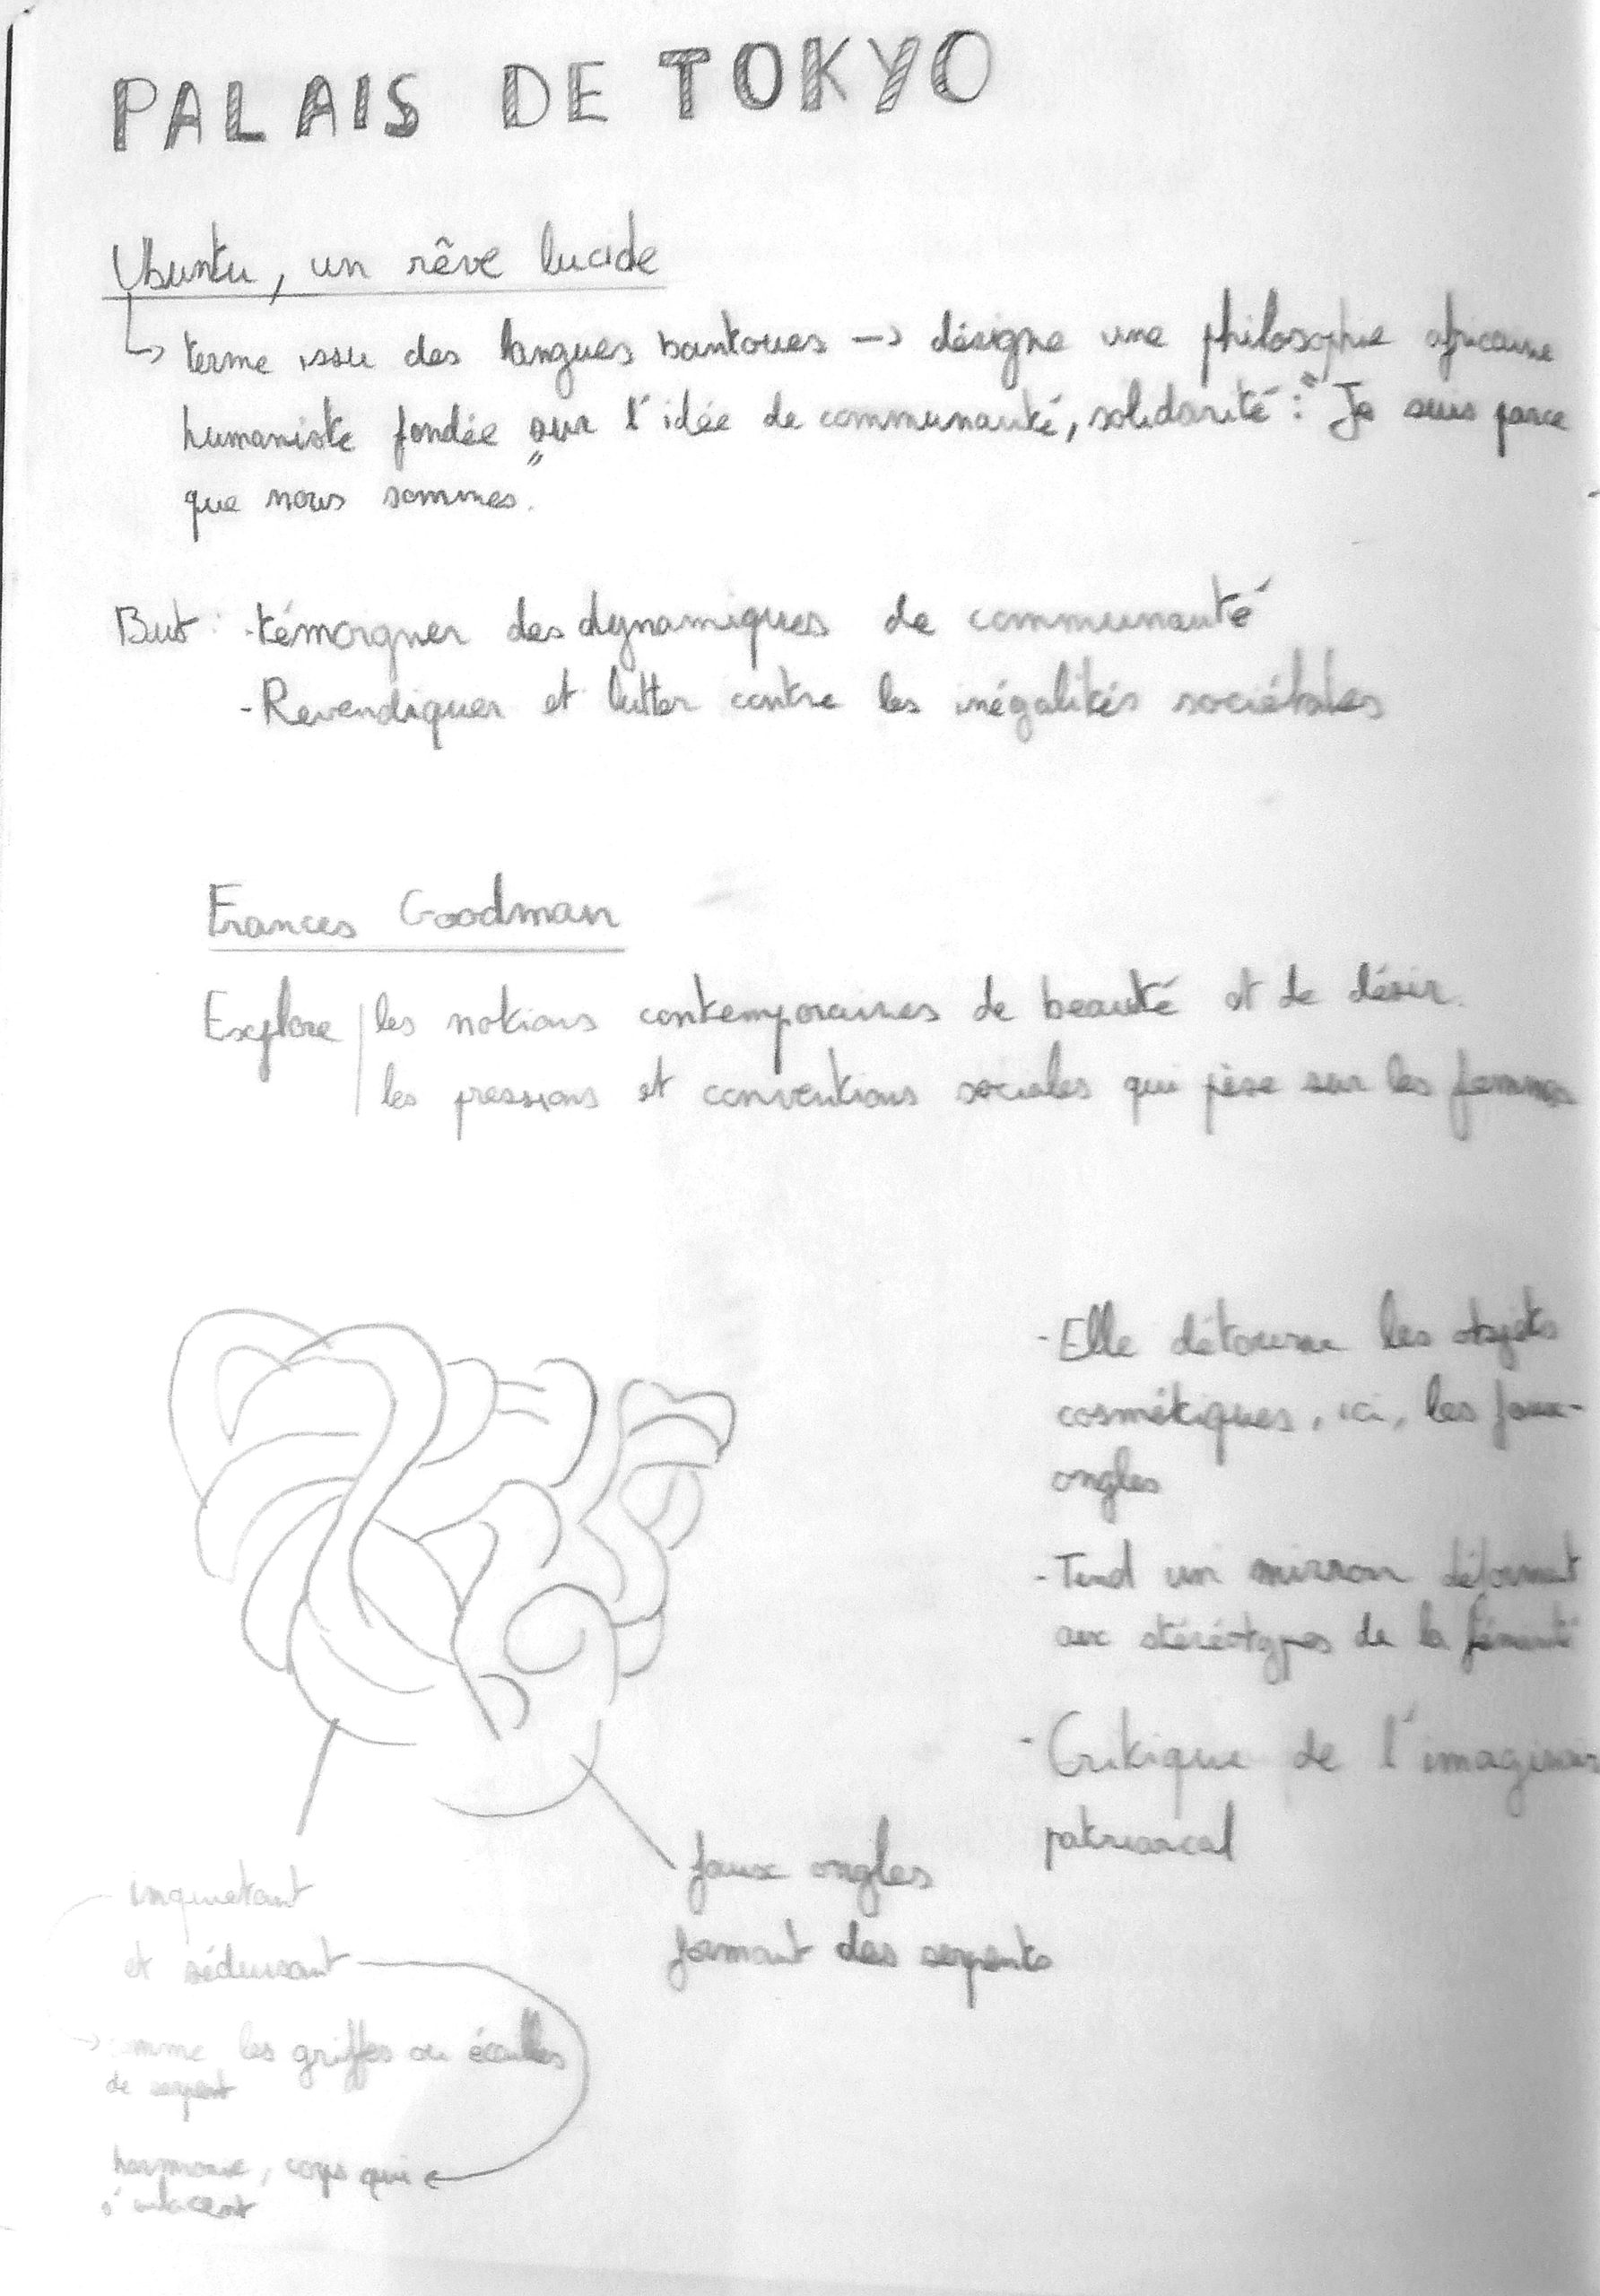 PALAIS DE TOKYO
Ubuntu, un rêve lucide
↳ terme issu des langues bantoues → désigne une philosophie africaine
humaniste fondée sur l'idée de communauté, solidarité : "Je suis parce
que nous sommes".
But : - témoigner des dynamiques de communauté
- Revendiquer et lutter contre les inégalités sociétales
Frances Goodman
Explore les notions contemporaines de beauté et de désir.
les pressions et conventions sociales qui pèse sur les femmes
- Elle détourne les objets
cosmétiques, ici, les faux-
ongles
- Tend un mirroir déformant
aux stéréotypes de la
- Critique de l'imaginaire
patriarcal
faux ongles
formant des serpents
inquietant
et séduisant
→ comme les griffes ou écailles
de serpent
harmonie, corps qui
s'enlacent